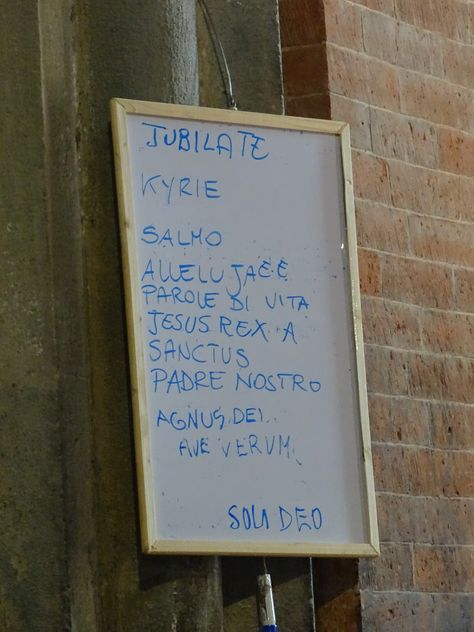 JUBILATE
KYRIE
SALMO
ALLELUJA È È
PAROLE DI VITA
JESUS REX A
SANCTUS
PADRE NOSTRO
AGNUS DEI
AVE VERUM
SOLI DEO